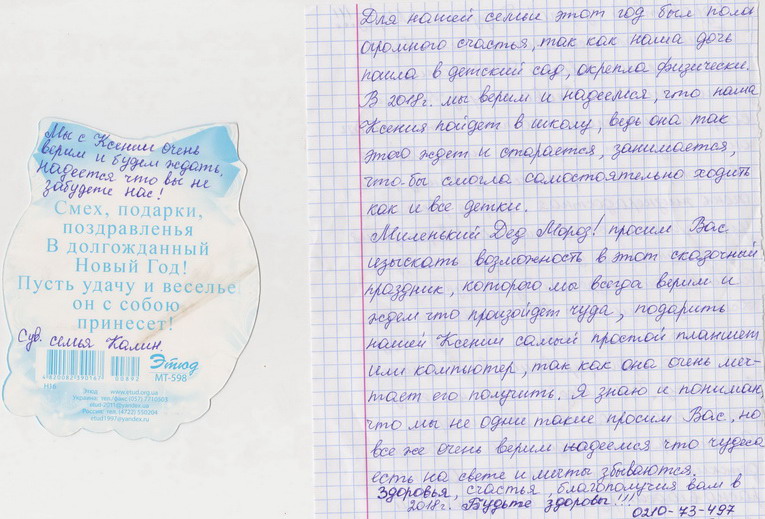 Мы с Ксенией очень
верим и будем ждать,
надеется что вы не
забудете нас!
Смех, подарки,
поздравленья
В долгожданный
Новый Год!
Пусть удачу и веселье
он с собою
принесет!
Сув. семья Калин.
Этюд
МТ-598
4820082590167 00892
Н16
Этюд www.etud.org.ua
Украина: тел./факс (057) 7210303
etud-2011@yandex.ru
Россия: тел. (4722) 550204
etud1997@yandex.ru
Для нашей семьи этот год был полон
огромного счастья, так как наша дочь
пошла в детский сад, окрепла физически.
В 2018г. мы верим и надеемся, что наша
Ксения пойдет в школу, ведь она так
этого ждет и старается, занимается,
что-бы смогла самостоятельно ходить
как и все детки.
Миленький Дед Мороз! просим Вас
изыскать возможность в этот сказочный
праздник, которого мы всегда верим и
ждем что произойдет чуда, подарить
нашей Ксении самый простой планшет
или компьютер, так как она очень меч-
тает его получить. Я знаю и понимаю,
что мы не одни такие просим Вас, но
все же очень верим надеемся что чудеса
есть на свете и мечты сбываются.
Здоровья, счастья, благополучия вам в
2018г. Будьте здоровы!!!
0210-73-497